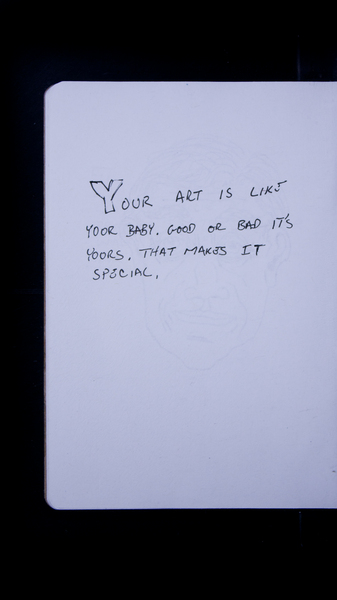 YOUR ART IS LIKE
YOUR BABY. GOOD OR BAD IT'S
YOURS. THAT MAKES IT
SPECIAL.